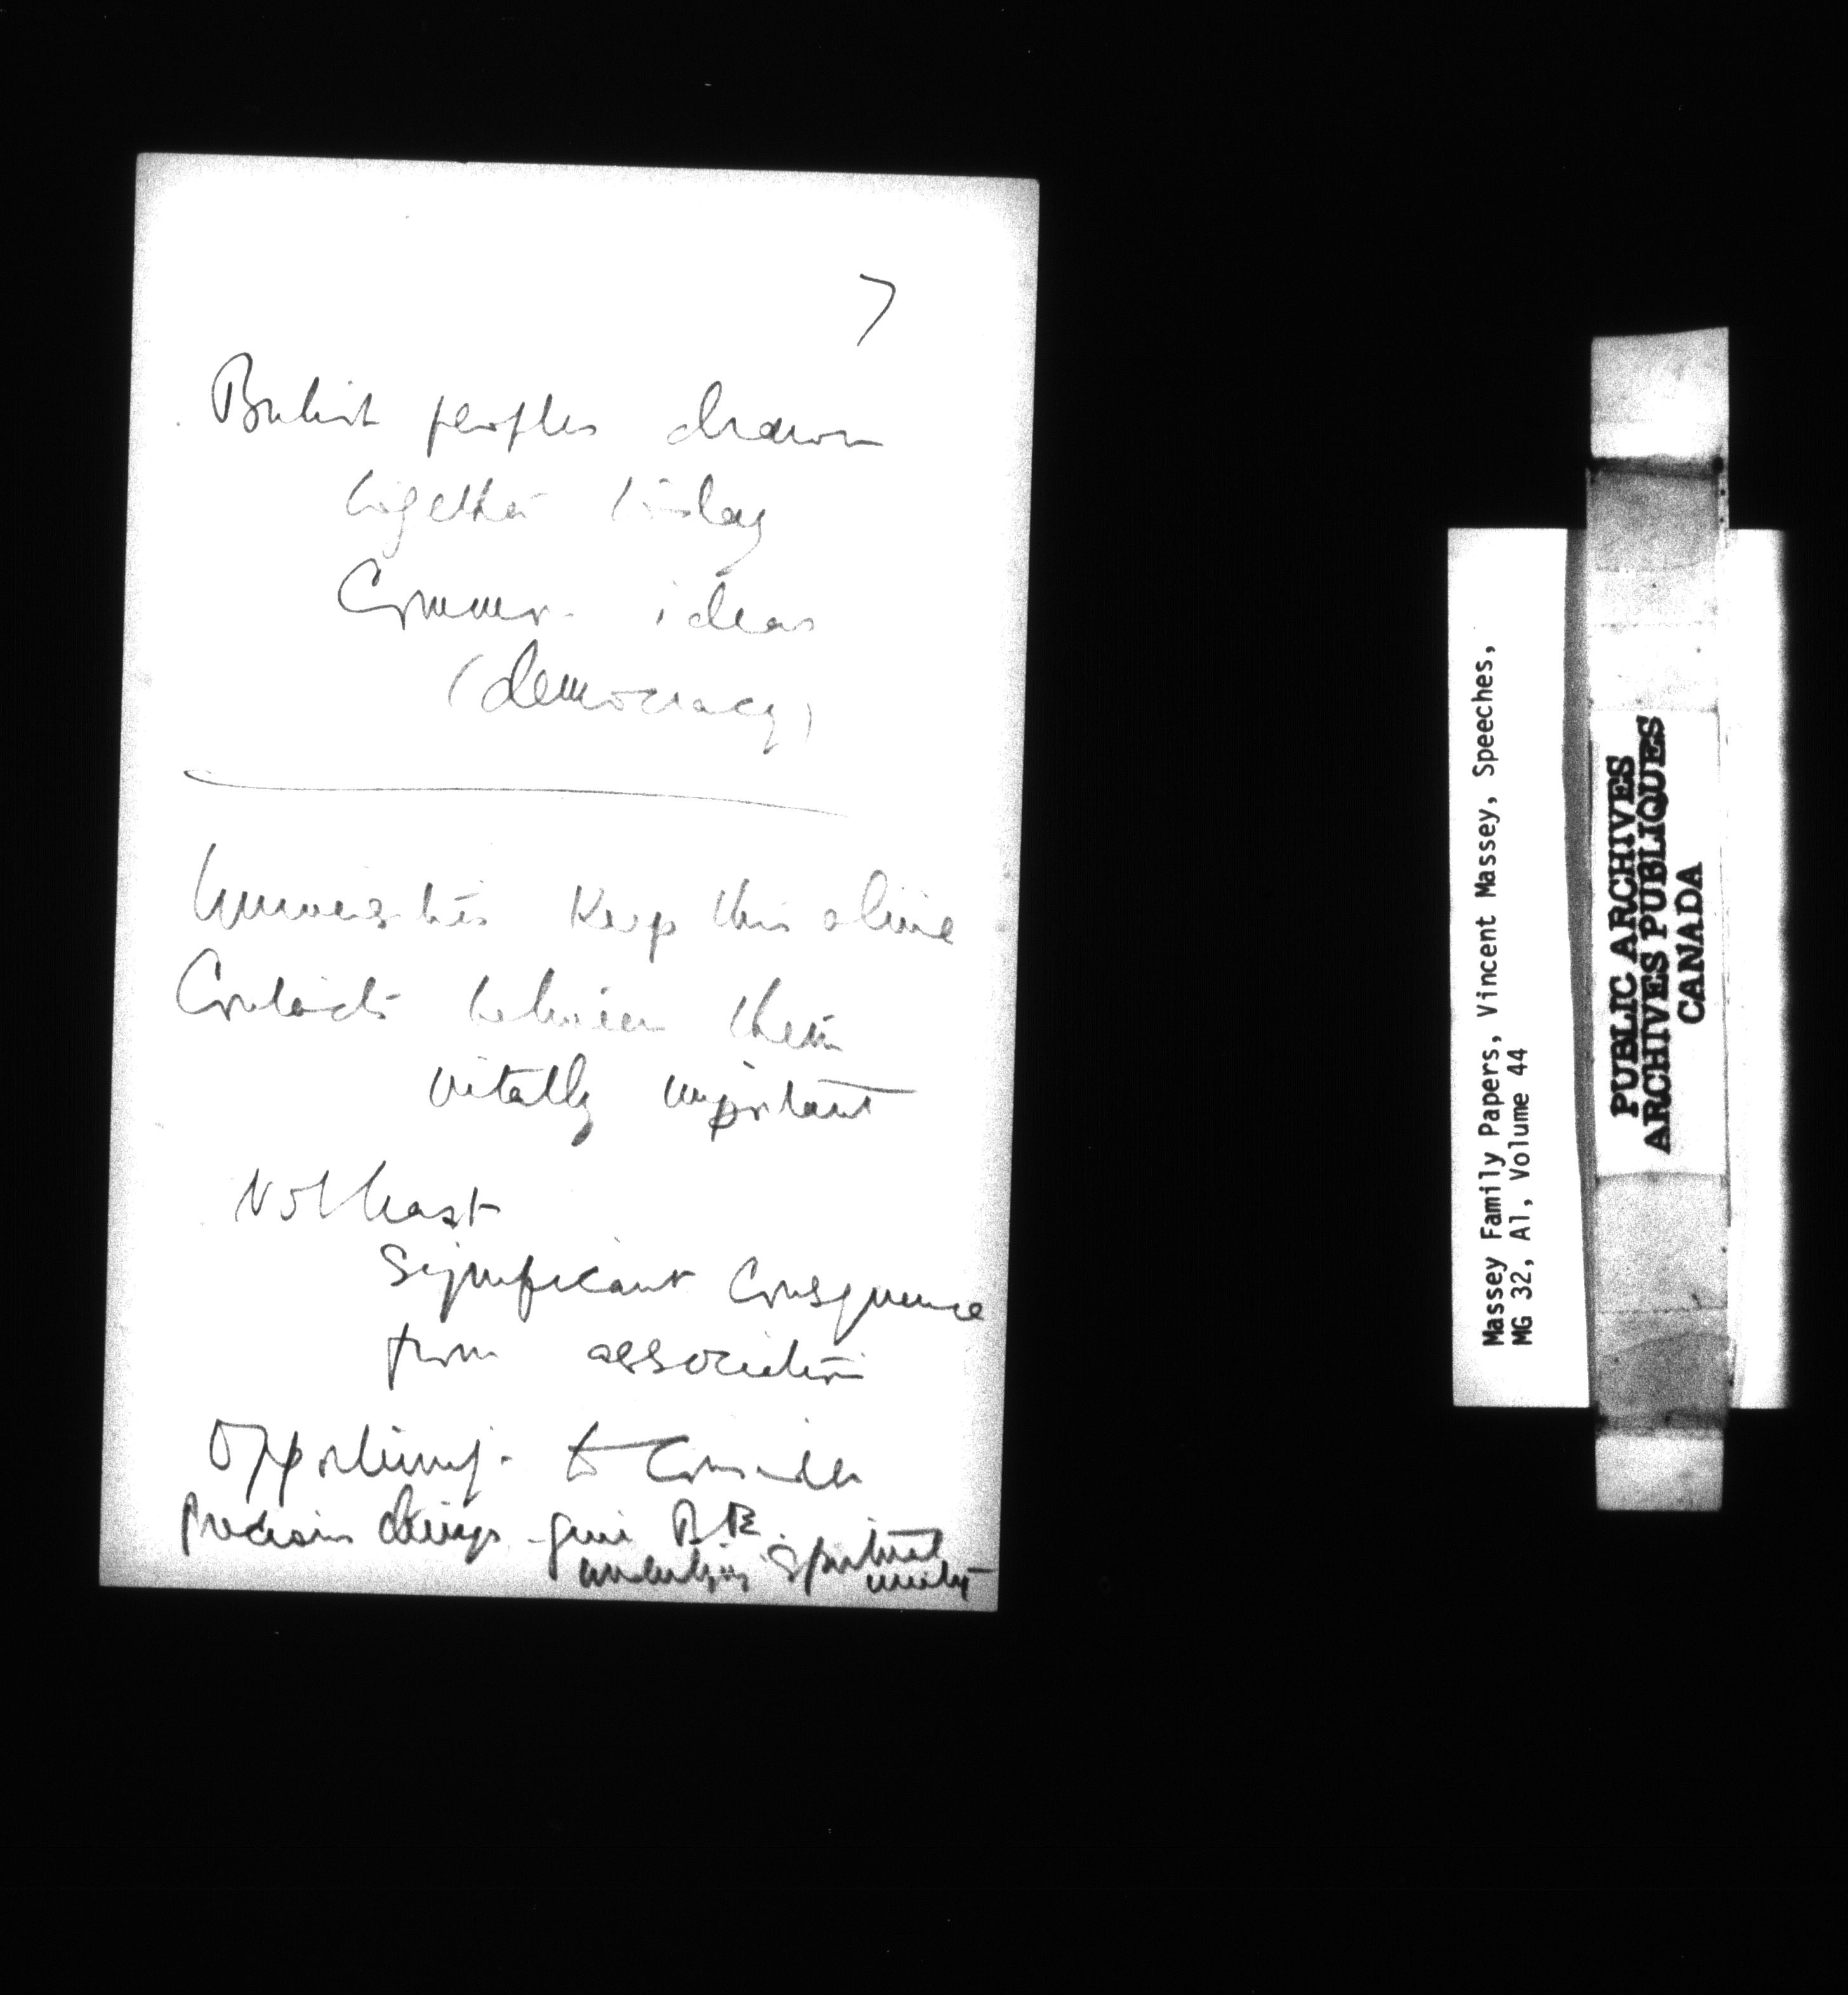 7
British peoples drawn
together today
Common ideas
(democracy)
Universities keep this alive
Contacts between them
vitally important
Not least
Significant consequence
from association
Opportunity to consider
precious things - give B.E.
underlying spiritual
unity
Massey Family Papers, Vincent Massey, Speeches,
MG 32, A1, Volume 44
PUBLIC ARCHIVES
ARCHIVES PUBLIQUES
CANADA